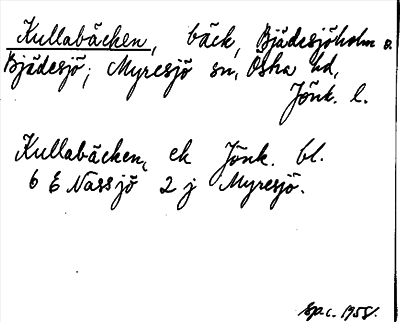 Kullabäcken, bäck, Bjädesjöholm o.
Bjädesjö; Myresjö sn, Östra hd,
Jönk. l.
Kullabäcken, ek Jönk. bl.
6 E Nässjö 2 j Myresjö.
1958.